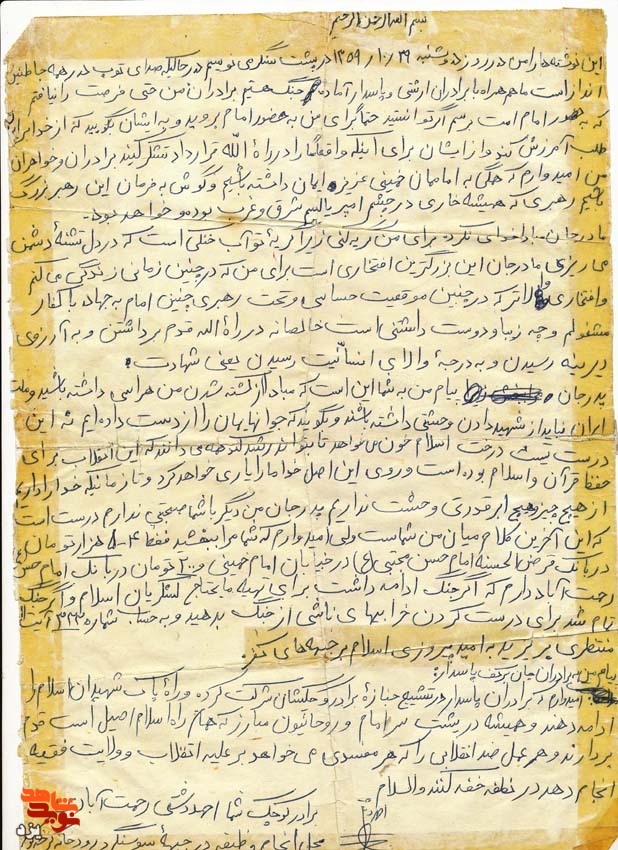 بسم الله الرحمن الرحیم
این نوشته ها را من در روز دوشنبه ۱۳۵۹/۱۰/۲۹ در پشت سنگر می نویسم در حالیکه صدای توپ در همه جا طنین
انداز است ما هم همراه با برادران ارتشی و پاسدار آماده جنگ هستیم برادران من حتی فرصت را نیافتم
که به حضور امام امت برسم اگر توانستید حتماً برای من به حضور امام بروید و به ایشان بگویید که از خدا برایم
طلب آمرزش کند و از ایشان برای اینکه واقعاً ما را در راه الله قرار داد تشکر کنید برادران و خواهران
من امیدوارم که همگی به امامان خمینی عزیز ایمان داشته باشیم و گوش به فرمان این رهبر بزرگ
باشیم رهبری که همیشه خاری در چشم امپریالیسم شرق و غرب بوده و خواهد بود.
مادرجان مبادا خدای نکرده برای من گریه کنی زیرا گریه تو آب خنکی است که در دل تشنه دشمن
می ریزی مادرجان این بزرگترین افتخاری است برای من که در چنین زمانی زندگی می کنم
و افتخاری والاتر که در چنین موقعیت حساسی و تحت رهبری چنین امام به جهاد با کفار
مشغولم و چه زیبا و دوست داشتنی است خالصانه در راه الله قدم برداشتن و به آرزوی
دیرینه رسیدن و به درجه والای انسانیت رسیدن یعنی شهادت.
پدرجان پیام من به شما این است که مبادا از کشته شدن من هراسی داشته باشید و ملت
ایران نباید از شهید دادن وحشتی داشته باشند و نگویید که جوانهایمان را از دست داده ایم نه این
درست نیست درخت اسلام خون می خواهد تا بتواند رشد کند همه می دانند که این انقلاب برای
حفظ قرآن و اسلام بوده است و روی این اصل خدا ما را یاری خواهد کرد و تا زمانیکه خدا را داریم
از هیچ چیز و هیچ ابرقدرتی وحشت نداریم پدرجان من دیگر با شما صحبتی ندارم درست است
که این آخرین کلام میان من شماست ولی امیدوارم که شما مرا ببخشید فقط ۴-۵ هزار تومان
در بانک قرض الحسنه امام حسن مجتبی (ع) در خیابان امام خمینی و ۲۰۰ تومان در بانک امام حسن
رحمت آباد دارم که اگر جنگ ادامه داشت برای تهیه مایحتاج لشکریان اسلام و اگر جنگ
تمام شد برای درست کردن خرابیهای ناشی از جنگ بدهید و به حساب شماره ۲۲۲ آیت الله
منتظری بریزید به امید پیروزی اسلام بر جبهه های کفر.
پیام من به برادران جان برکف پاسدار:
امیدوارم که برادران پاسدار در تشییع جنازه برادر کوچکشان شرکت کرده و راه پاک شهیدان اسلام را
ادامه دهند و همیشه در پشت سر امام و روحانیون مبارز که همان راه اسلام اصیل است قدم
بردارند و هر عمل ضد انقلابی را که هر مفسدی می خواهد بر علیه انقلاب و ولایت فقیه
انجام دهد در نطفه خفه کنند والسلام
برادر کوچک شما احمد دشتی رحمت آباد
محل انجام وظیفه در جبهه سوسنگرد رودخانه
نوید شاهد
یزد